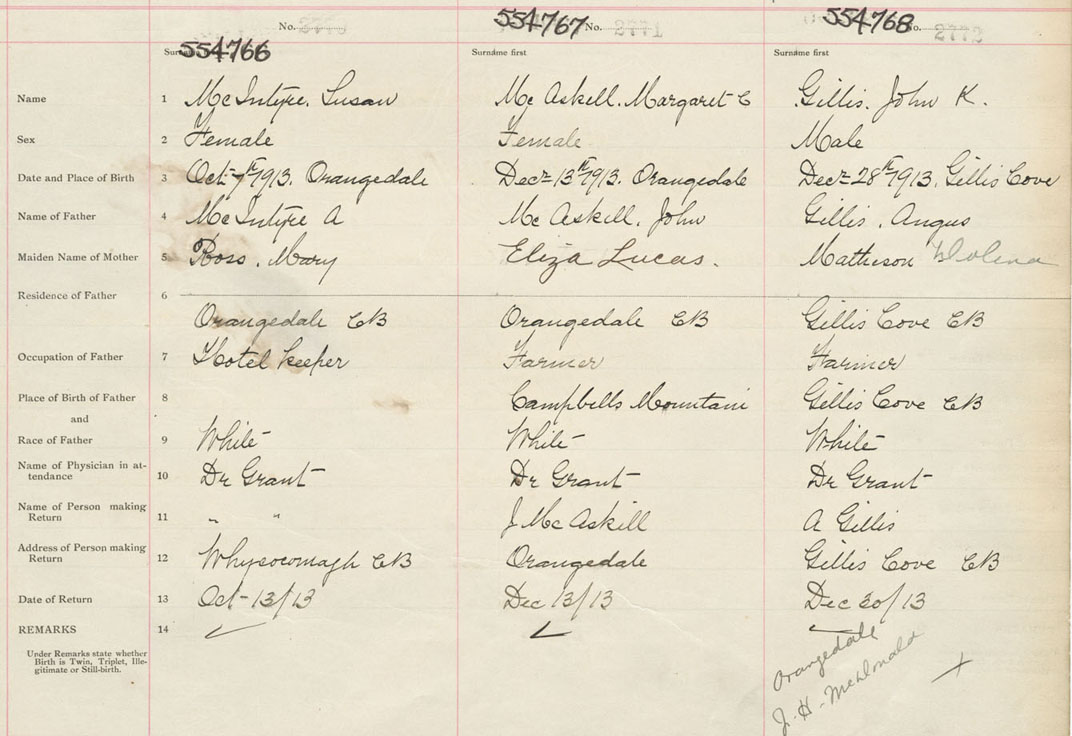 No. 2770 554767 No. 2771 554768 No. 2772
554766
Surname first Surname first Surname first
Name 1 McIntyre. Susan Mc Askell. Margaret C Gillis. John K.
Sex 2 Female Female Male
Date and Place of Birth 3 Oct 7th 1913. Orangedale Dec 13th 1913. Orangedale Dec 28th 1913. Gillis Cove
Name of Father 4 McIntyre A Mc Askill. John Gillis. Angus
Maiden Name of Mother 5 Ross. Mary Eliza Lucas. Matheson Dolena
Residence of Father 6
Orangedale CB Orangedale CB Gillis Cove CB
Occupation of Father 7 Hotel keeper Farmer Farmer
Place of Birth of Father 8 Campbells Mountain Gillis Cove CB
and
Race of Father 9 White White White
Name of Physician in at-
tendance 10 Dr Grant Dr Grant Dr Grant
Name of Person making
Return 11 " " J McAskill A Gillis
Address of Person making
Return 12 Whycocomagh CB Orangedale Gillis Cove CB
Date of Return 13 Oct 13/13 Dec 13/13 Dec 30/13
REMARKS 14
Under Remarks state whether
Birth is Twin, Triplet, Ille-
gitimate or Still-birth.
Orangedale
J. H. McDonald